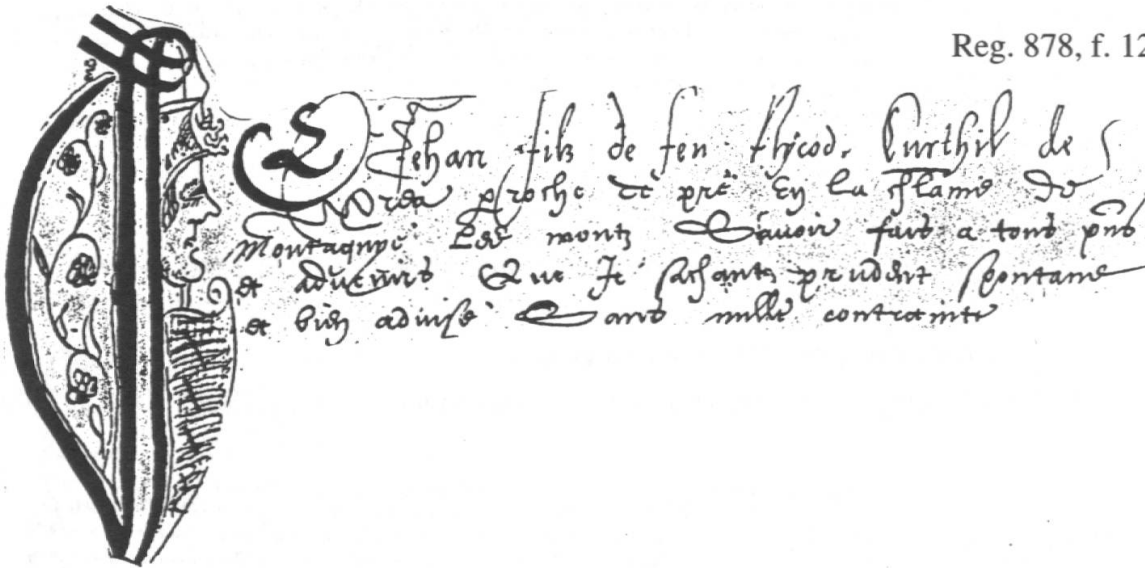 Reg. 878, f. 12
Jehan filz de feu Curthil de
proche de pré En la de
Montagnye Les montz Sauoir fais a tous pñs
et aduenirs Que Je sachantz prudent spontane
et bien aduisé Sans nulle contrainte